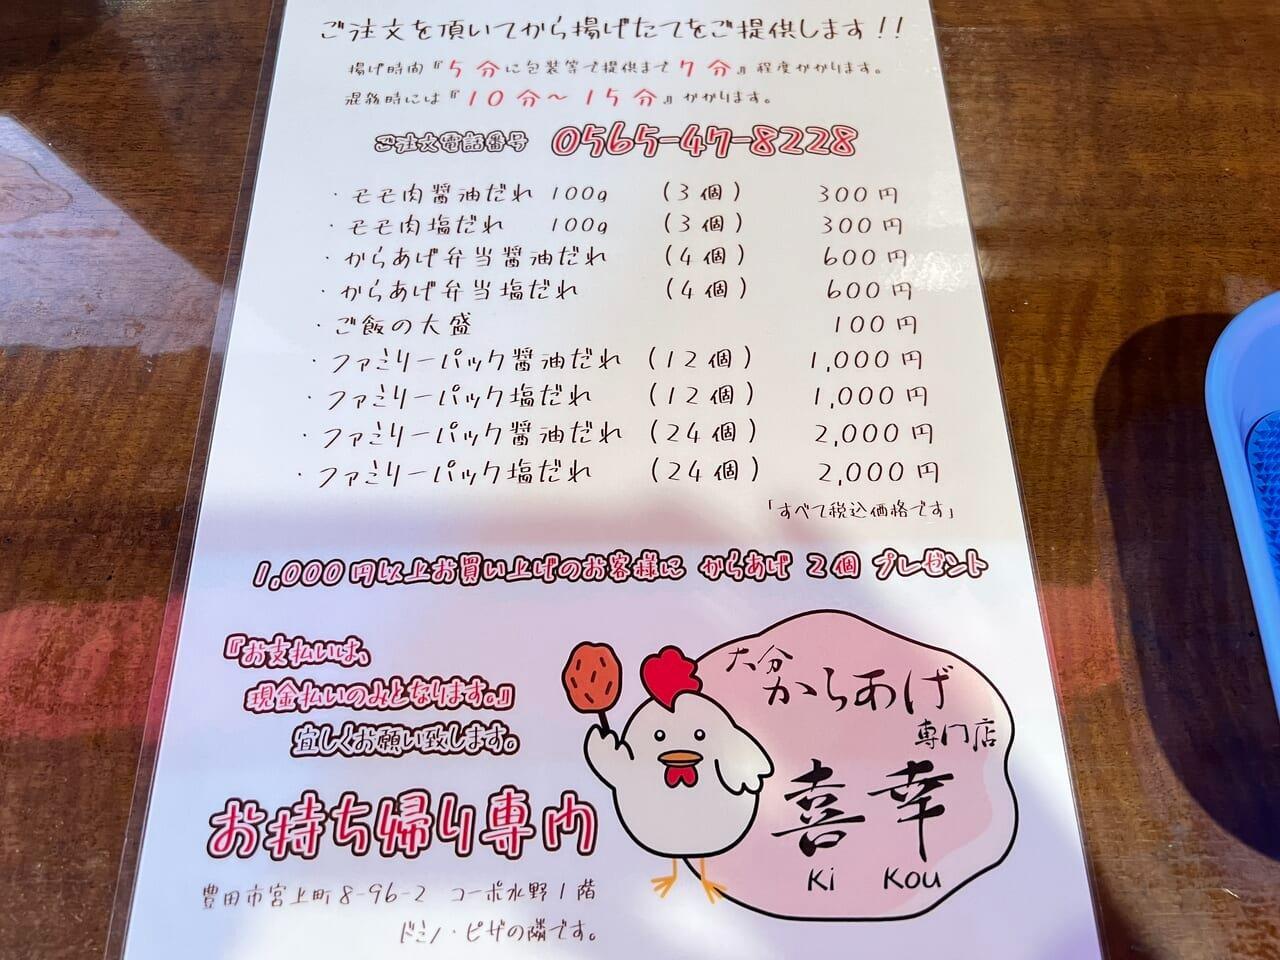 ご注文を頂いてから揚げたてをご提供します！！
揚げ時間『5分に包装等で提供まで7分』程度かかります。
混雑時には『10分～15分』かかります。
ご注文電話番号 0565-47-8228
・モモ肉醤油だれ 100g （3個） 300円
・モモ肉塩だれ 100g （3個） 300円
・からあげ弁当醤油だれ （4個） 600円
・からあげ弁当塩だれ （4個） 600円
・ご飯の大盛 100円
・ファミリーパック醤油だれ （12個） 1,000円
・ファミリーパック塩だれ （12個） 1,000円
・ファミリーパック醤油だれ （24個） 2,000円
・ファミリーパック塩だれ （24個） 2,000円
「すべて税込価格です」
1,000円以上お買い上げのお客様に からあげ 2個 プレゼント
『お支払いは、
現金払いのみとなります。』
宜しくお願い致します。
お持ち帰り専門
豊田市宮上町8-96-2 コーポ水野1階
ドミノ・ピザの隣です。
大分
からあげ
専門店
喜幸
Ki Kou